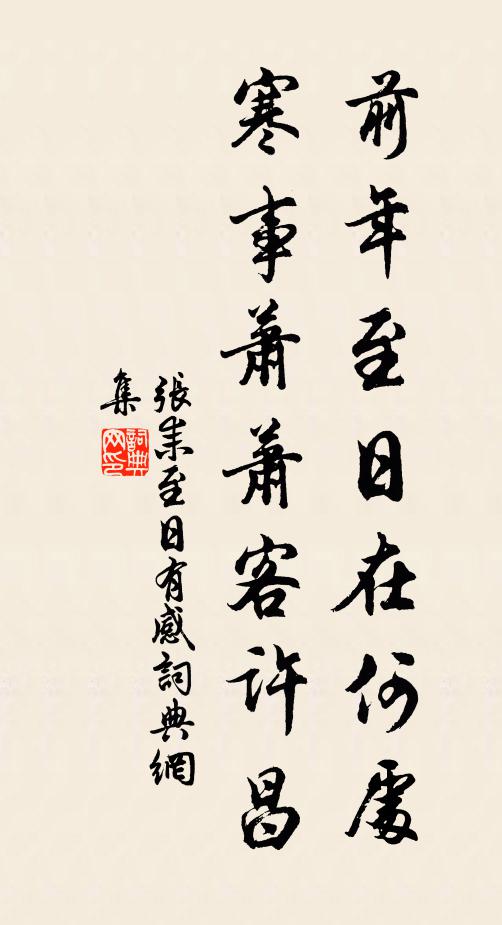 前年至日在何處
寒事蕭蕭客許昌
張耒至日有感詞典網
集
詞典網印